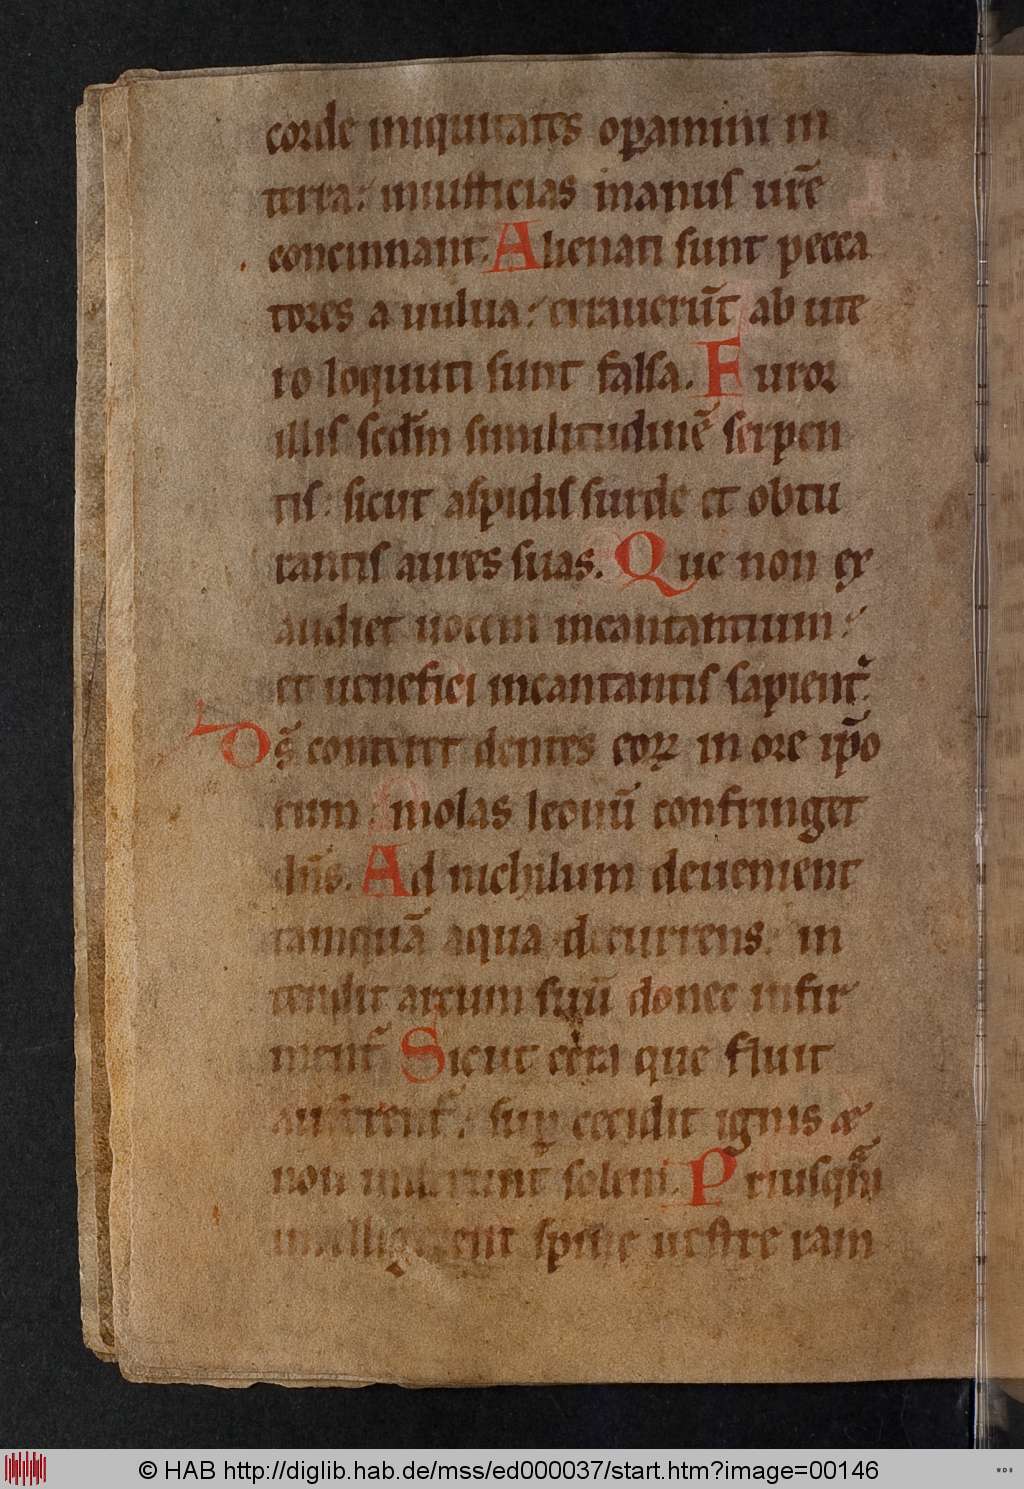 corde iniquitates op̲amini in
terra: iniusticias manus ur̄e
concinnant. Alienati sunt pecca
tores a uulua: errauerūt ab ute
ro loquuti sunt falsa. Furor
illis scdm̄ similitudinē serpen
tis: sicut aspidis surde et obtu
rantis aures suas. Que non ex
audiet uocem incantantium:
et uenefici incantantis sapient᷑.
Ds̄ conteret dentes eoꝝ in ore ip̄o
rum: molas leonū confringet
dn̄s. Ad nichilum deuenient
tamquā aqua decurrens: in
tendit arcum suū donec infir
ment᷑ Sicut cera que fluit
auferent᷑: suꝑ cecidit ignis &
non uiderunt solem. Priusqᷓm
intelligerent spine uestre ram
© HAB http://diglib.hab.de/mss/ed000037/start.htm?image=00146